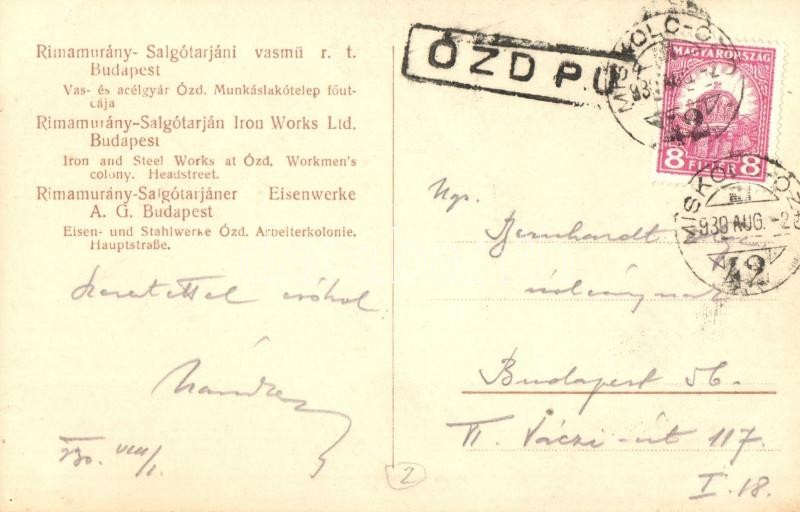 Rimamurány- Salgótarjáni vasmü r. t.
Budapest
Vas- és acélgyár Ózd. Munkáslakótelep főut-
cája
Rimamurány-Salgótarján Iron Works Ltd.
Budapest
Iron and Steel Works at Ózd. Workmen's
colony. Headstreet.
Rimamurány-Salgótarjáner Eisenwerke
A. G. Budapest
Eisen- und Stahlwerke Ózd. Arbeiterkolonie.
Hauptstraße.
Szeretettel
930. VIII/1.
2
ÓZD P.U
MISKOLC-ÓZD
42
MAGYARORSZÁG
8 FILLÉR 8
MISKOLC-ÓZD
930 AUG. -2
42
Ngs.
Bernhardt
Budapest 56.
VI. Váczi-út 117.
I. 18.